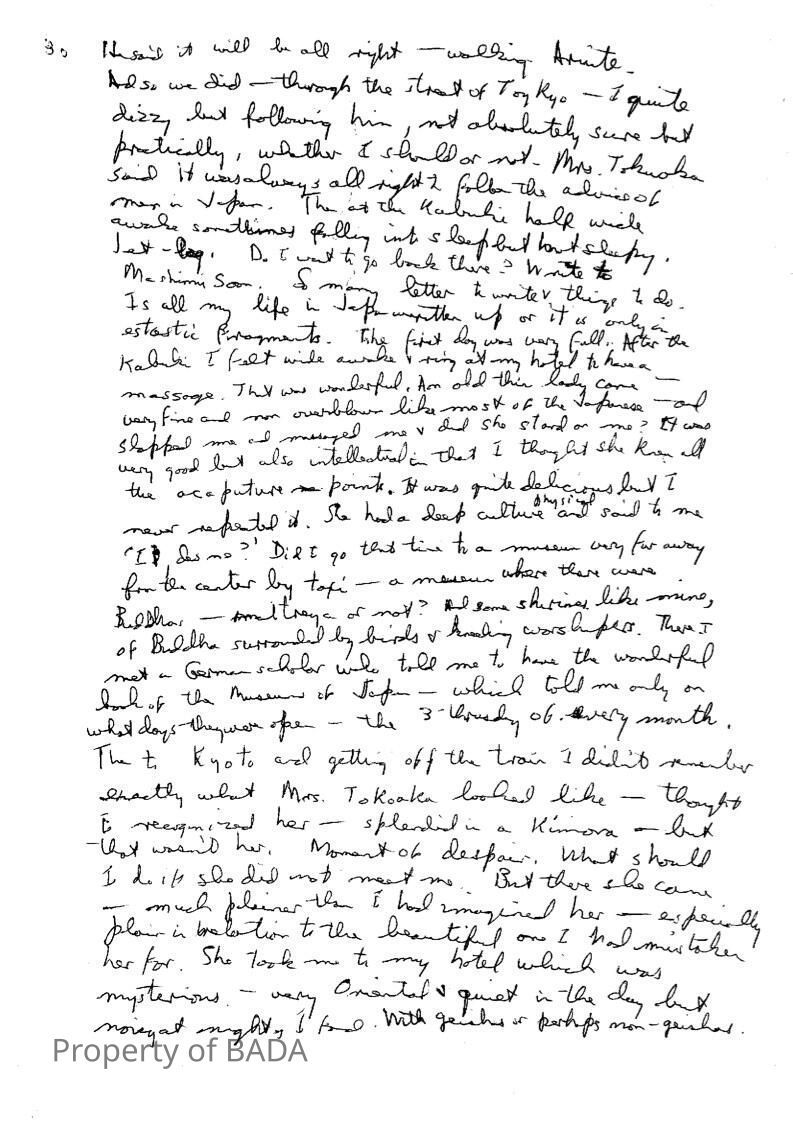 30 He said it will be all right — walking
And so we did — through the street of Toykyo — I quite
dizzy but following him, not absolutely sure but
practically, whether I should or not — Mrs. Tokuoka
said it was always all right to follow the advice of
men in Japan. The at the Kabuki half wide
awake sometimes falling into sleep but not sleepy.
Jet-lag. Do I want to go back there? Write to
soon. So many letter to write & things to do.
Is all my life in Japan written up or it is only in
estastic fragments. The first day was very full. After the
Kabuki I felt wide awake & ring at my hotel to have a
massage. That was wonderful. An old thin lady came —
very fine and non overblown like most of the Japanese — and
slapped me and massaged me & did she stand on me? It was
very good but also intellectual in that I thought she knew all
the points. It was quite delicious but I
never repeated it. She had a deep culture physical and said to me
Did I go that time to a museum very far away
from the center by taxi — a museum where there were
Buddhas — or not? And some shrines like mine,
of Buddha surrounded by birds & kneeling worshipers. There I
met a German scholar who told me to have the wonderful
book of the Museums of Japan — which told me only on
what days they were open — the 3 thursday of every month.
The to Kyoto and getting off the train I didn't remember
exactly what Mrs. Tokoaka looked like — thought
I recognized her — splendid in a Kimora — but
that wasn't her. Moment of despair. What should
I do if she did not meet me. But there she came
— much plainer than I had imagined her — especially
plain in relation to the beautiful one I had mistaken
her for. She took me to my hotel which was
mysterious — very Oriental & quiet in the day but
noisy at night, I found. With geishas or perhaps non-geishas.
Property of BADA